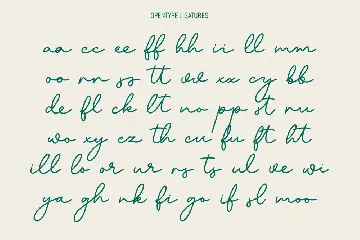 OPENTYPE LIGATURES
aa cc ee ff hh ii ll mm
oo nn ss tt ve xx cy bb
de fl ck lt no pp st nu
wo xy cz th cu fu ft ht
ill lo or ur rs ts ul ve wi
ya gh nk fi go if sl moo